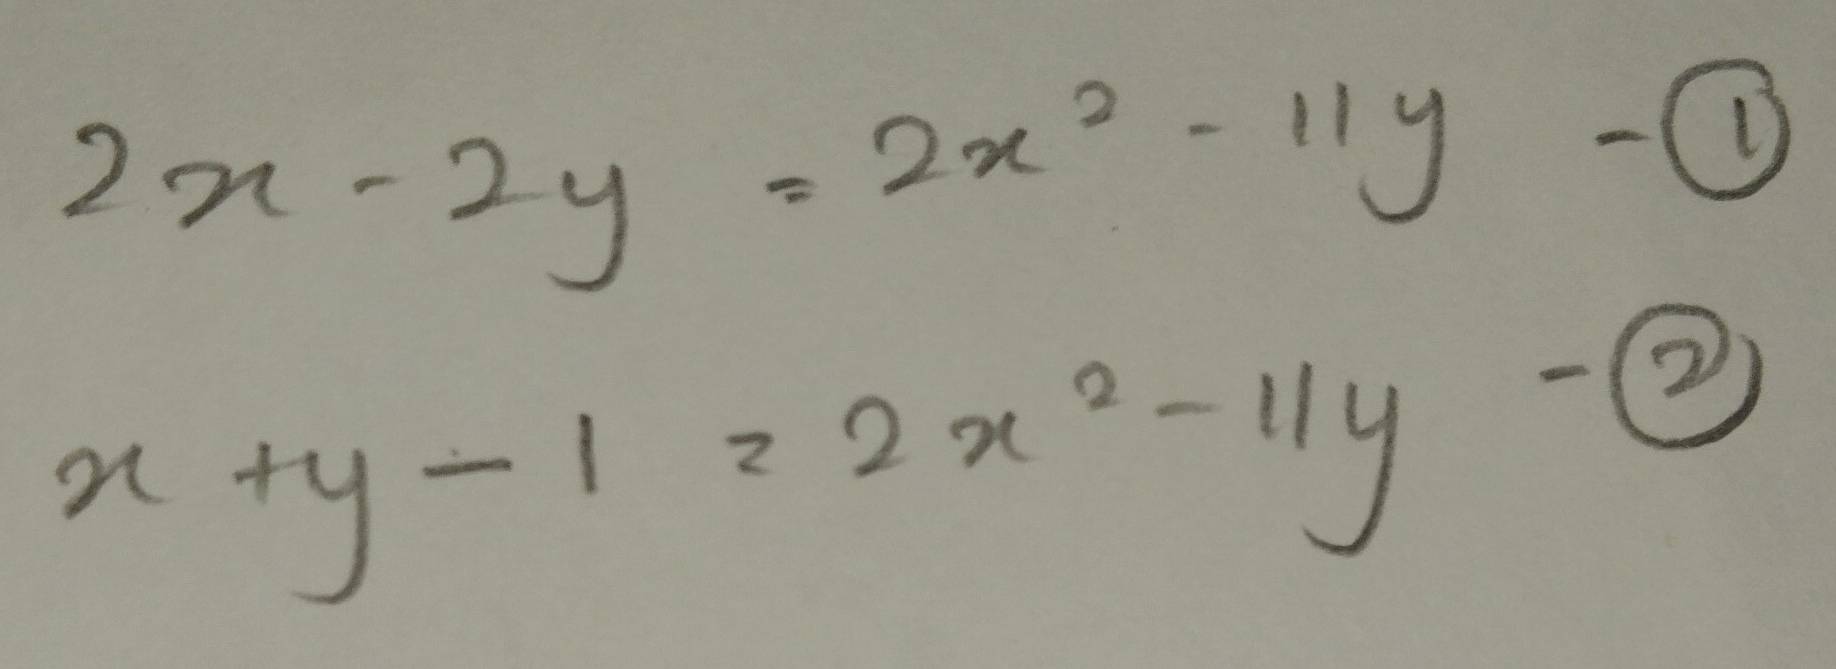 2x - 2y = 2x² - 11y - ①
x + y - 1 = 2x² - 11y - ②